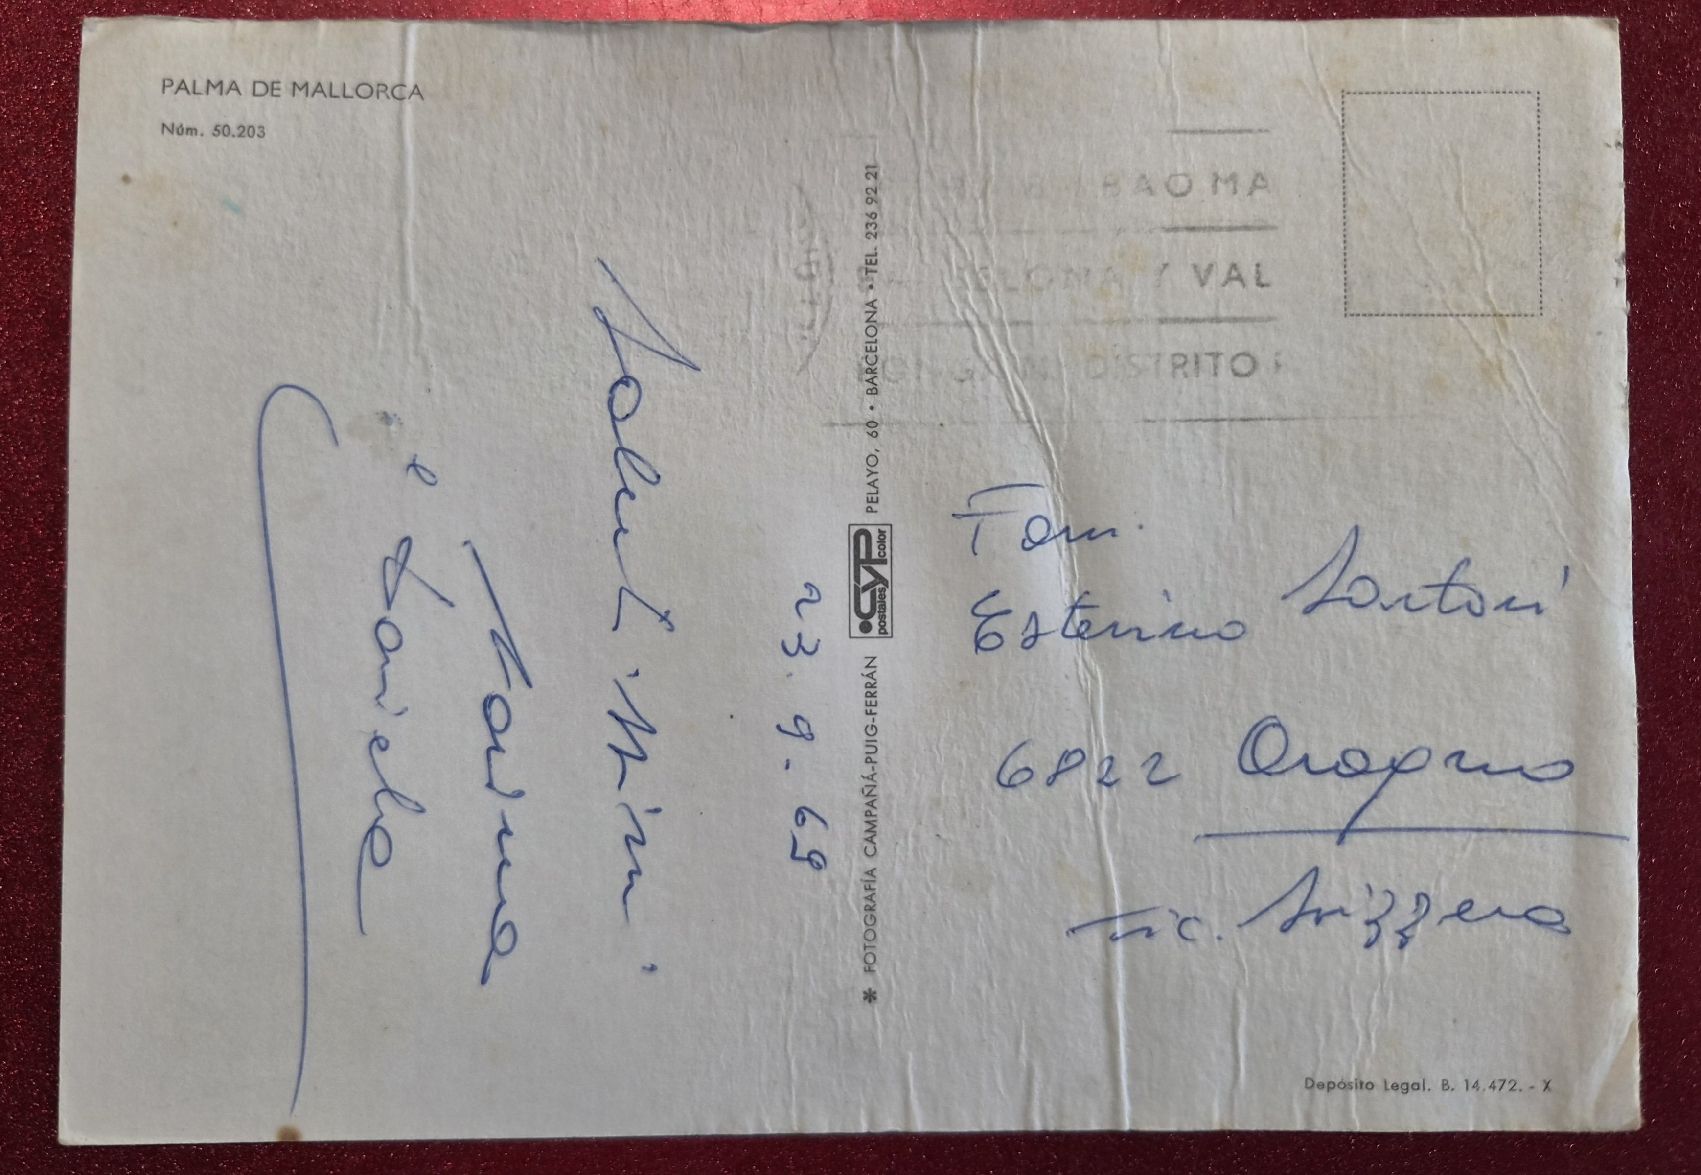 PALMA DE MALLORCA
Núm. 50.203
23.9.69
Marina
e Daniele
* FOTOGRAFÍA CAMPAÑÁ-PUIG-FERRÁN
CYP
postales color
PELAYO, 60 • BARCELONA • TEL. 236 92 21
BAO MA
BARCELONA Y VAL
DISTRITO
Fam.
Esterino Sartori
6822 Arogno
Tic. Svizzera
Depósito Legal. B. 14.472. - X